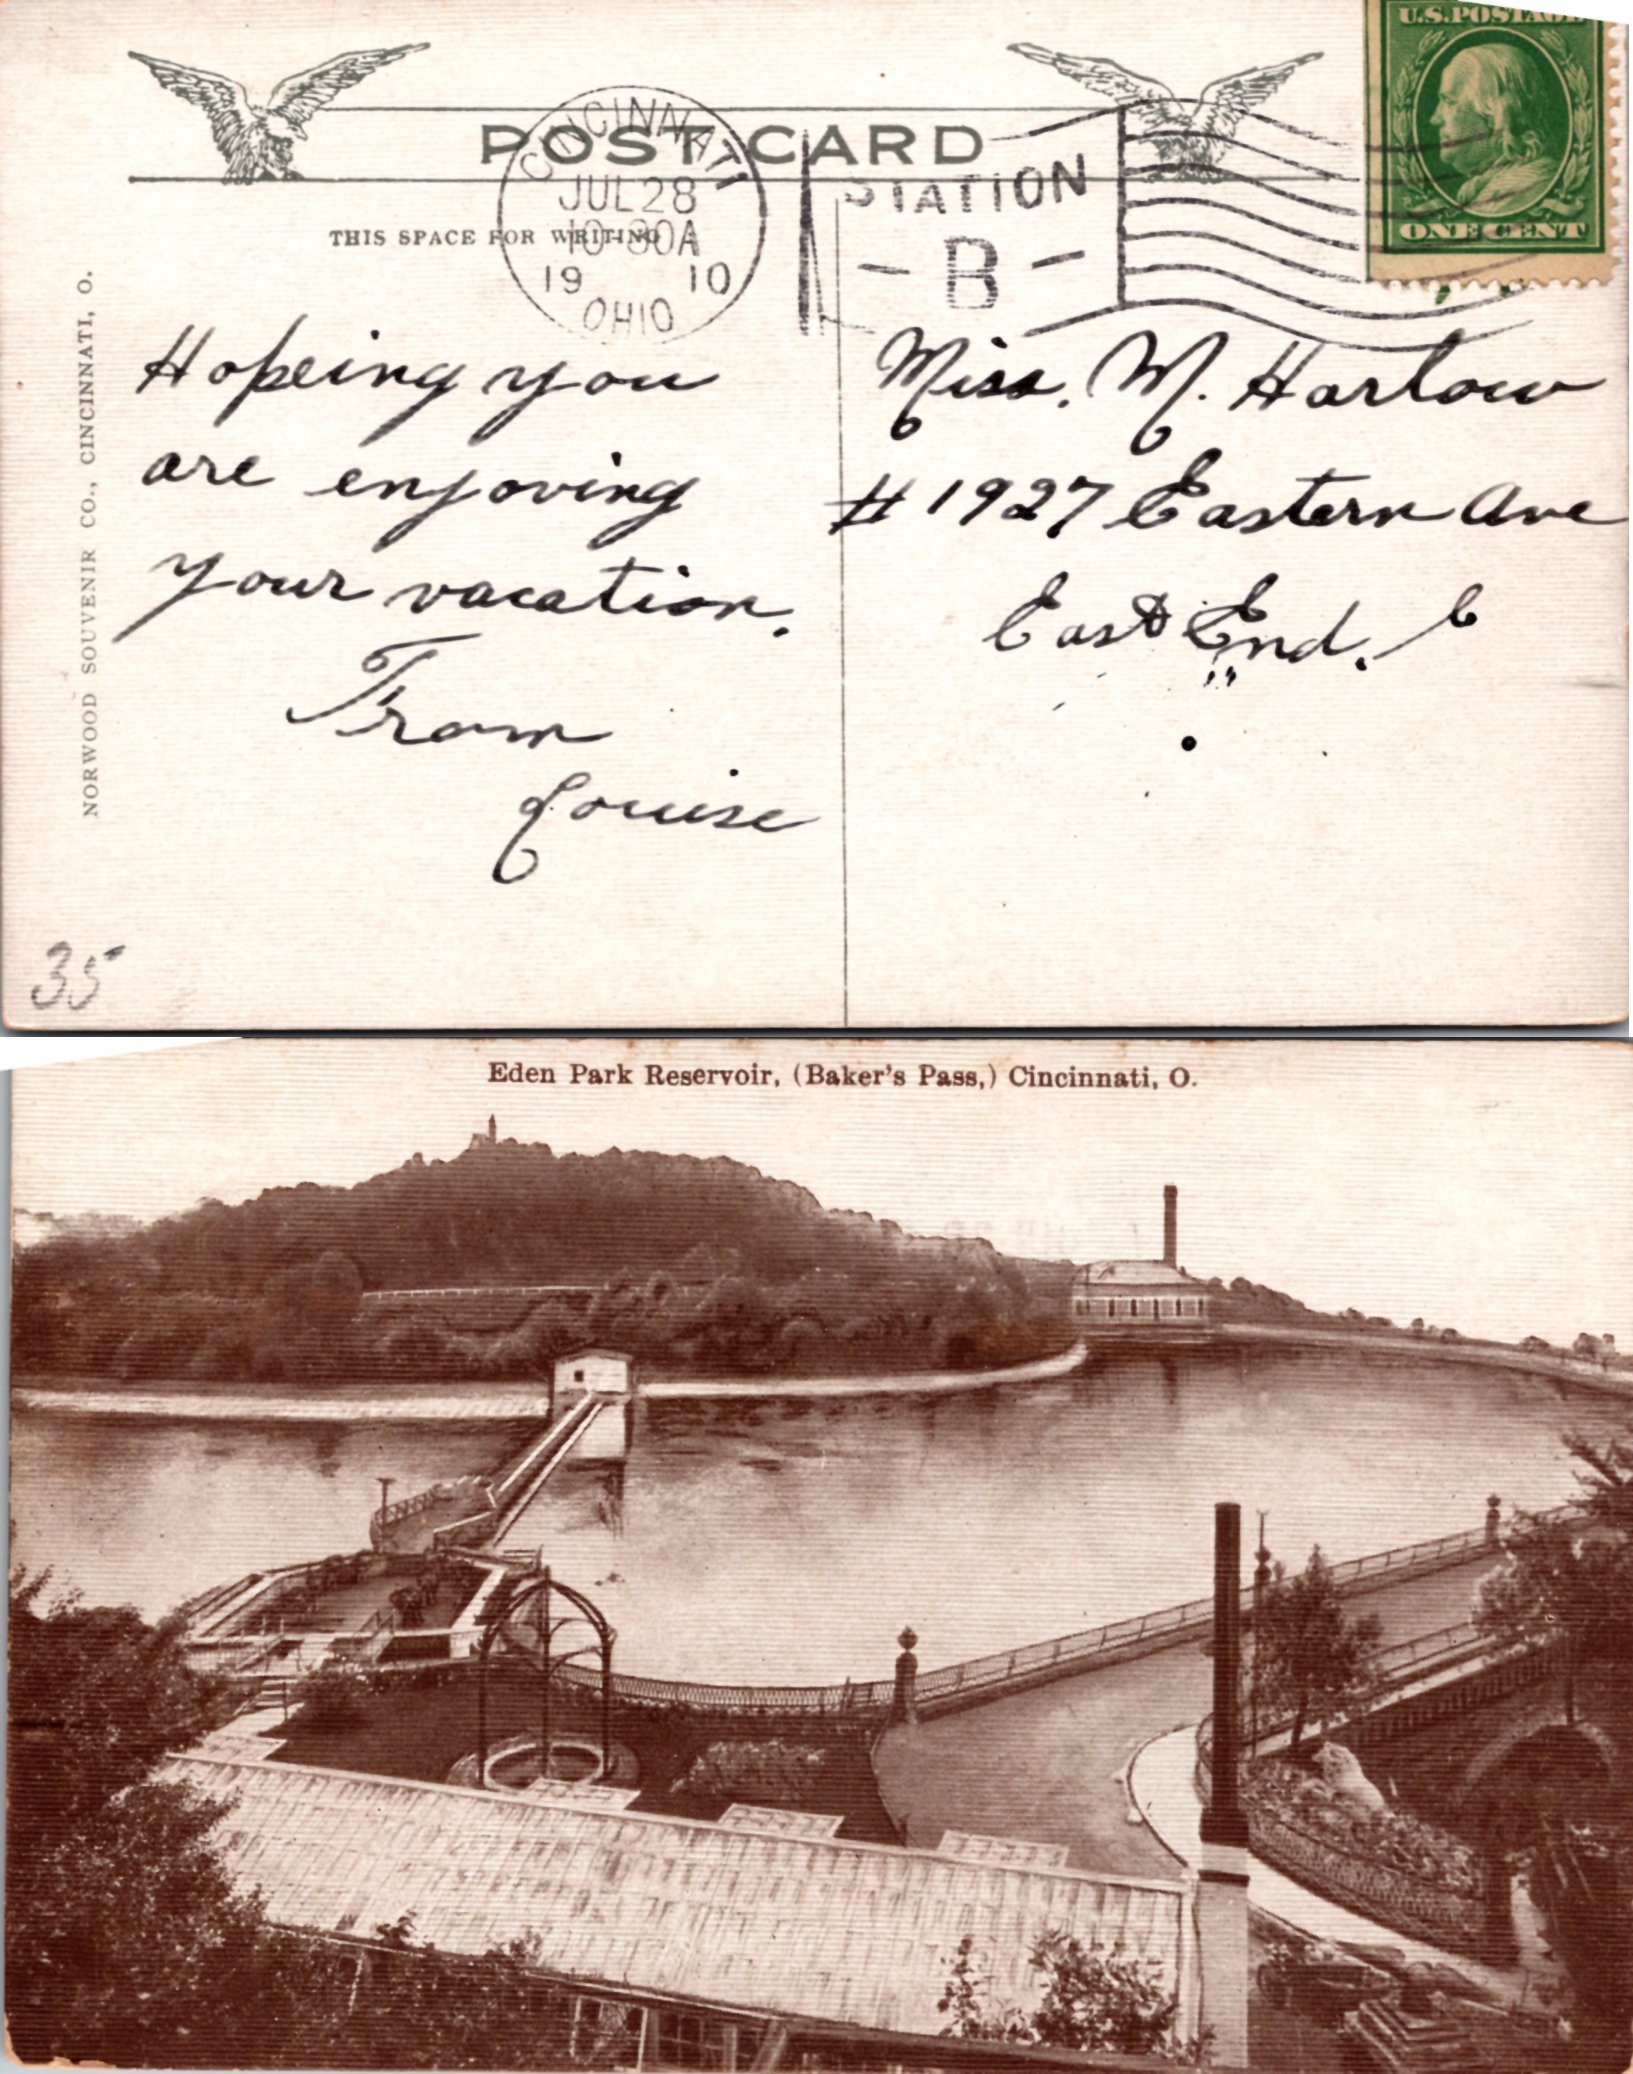 U.S. POSTAGE
POST CARD
CINCINNATI
JUL 28
10-30A
19 10
OHIO
STATION
- B -
ONE CENT
THIS SPACE FOR WRITING
NORWOOD SOUVENIR CO., CINCINNATI, O.
Hopeing you
are enjoving
your vacation.
From
Louise
Miss. M. Harlow
# 1927 Eastern Ave
East End. C
35
Eden Park Reservoir, (Baker's Pass,) Cincinnati, O.